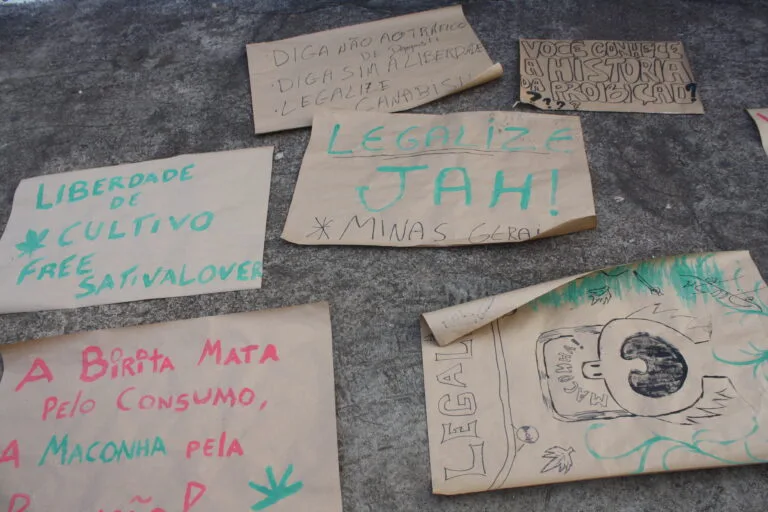 DIGA NÃO AO TRÁFICO
DI
DIGA SIM À LIBERDADE
LEGALIZE
CANABIS!
VOCÊ CONHECE
A HISTORIA
DA PROIBIÇÃO?
???
LEGALIZE
JAH!
* MINAS GERAI
LIBERDADE
DE
CULTIVO
FREE
SATIVA LOVER
A BIRITA MATA
PELO CONSUMO,
A MACONHA PELA
LEGAL